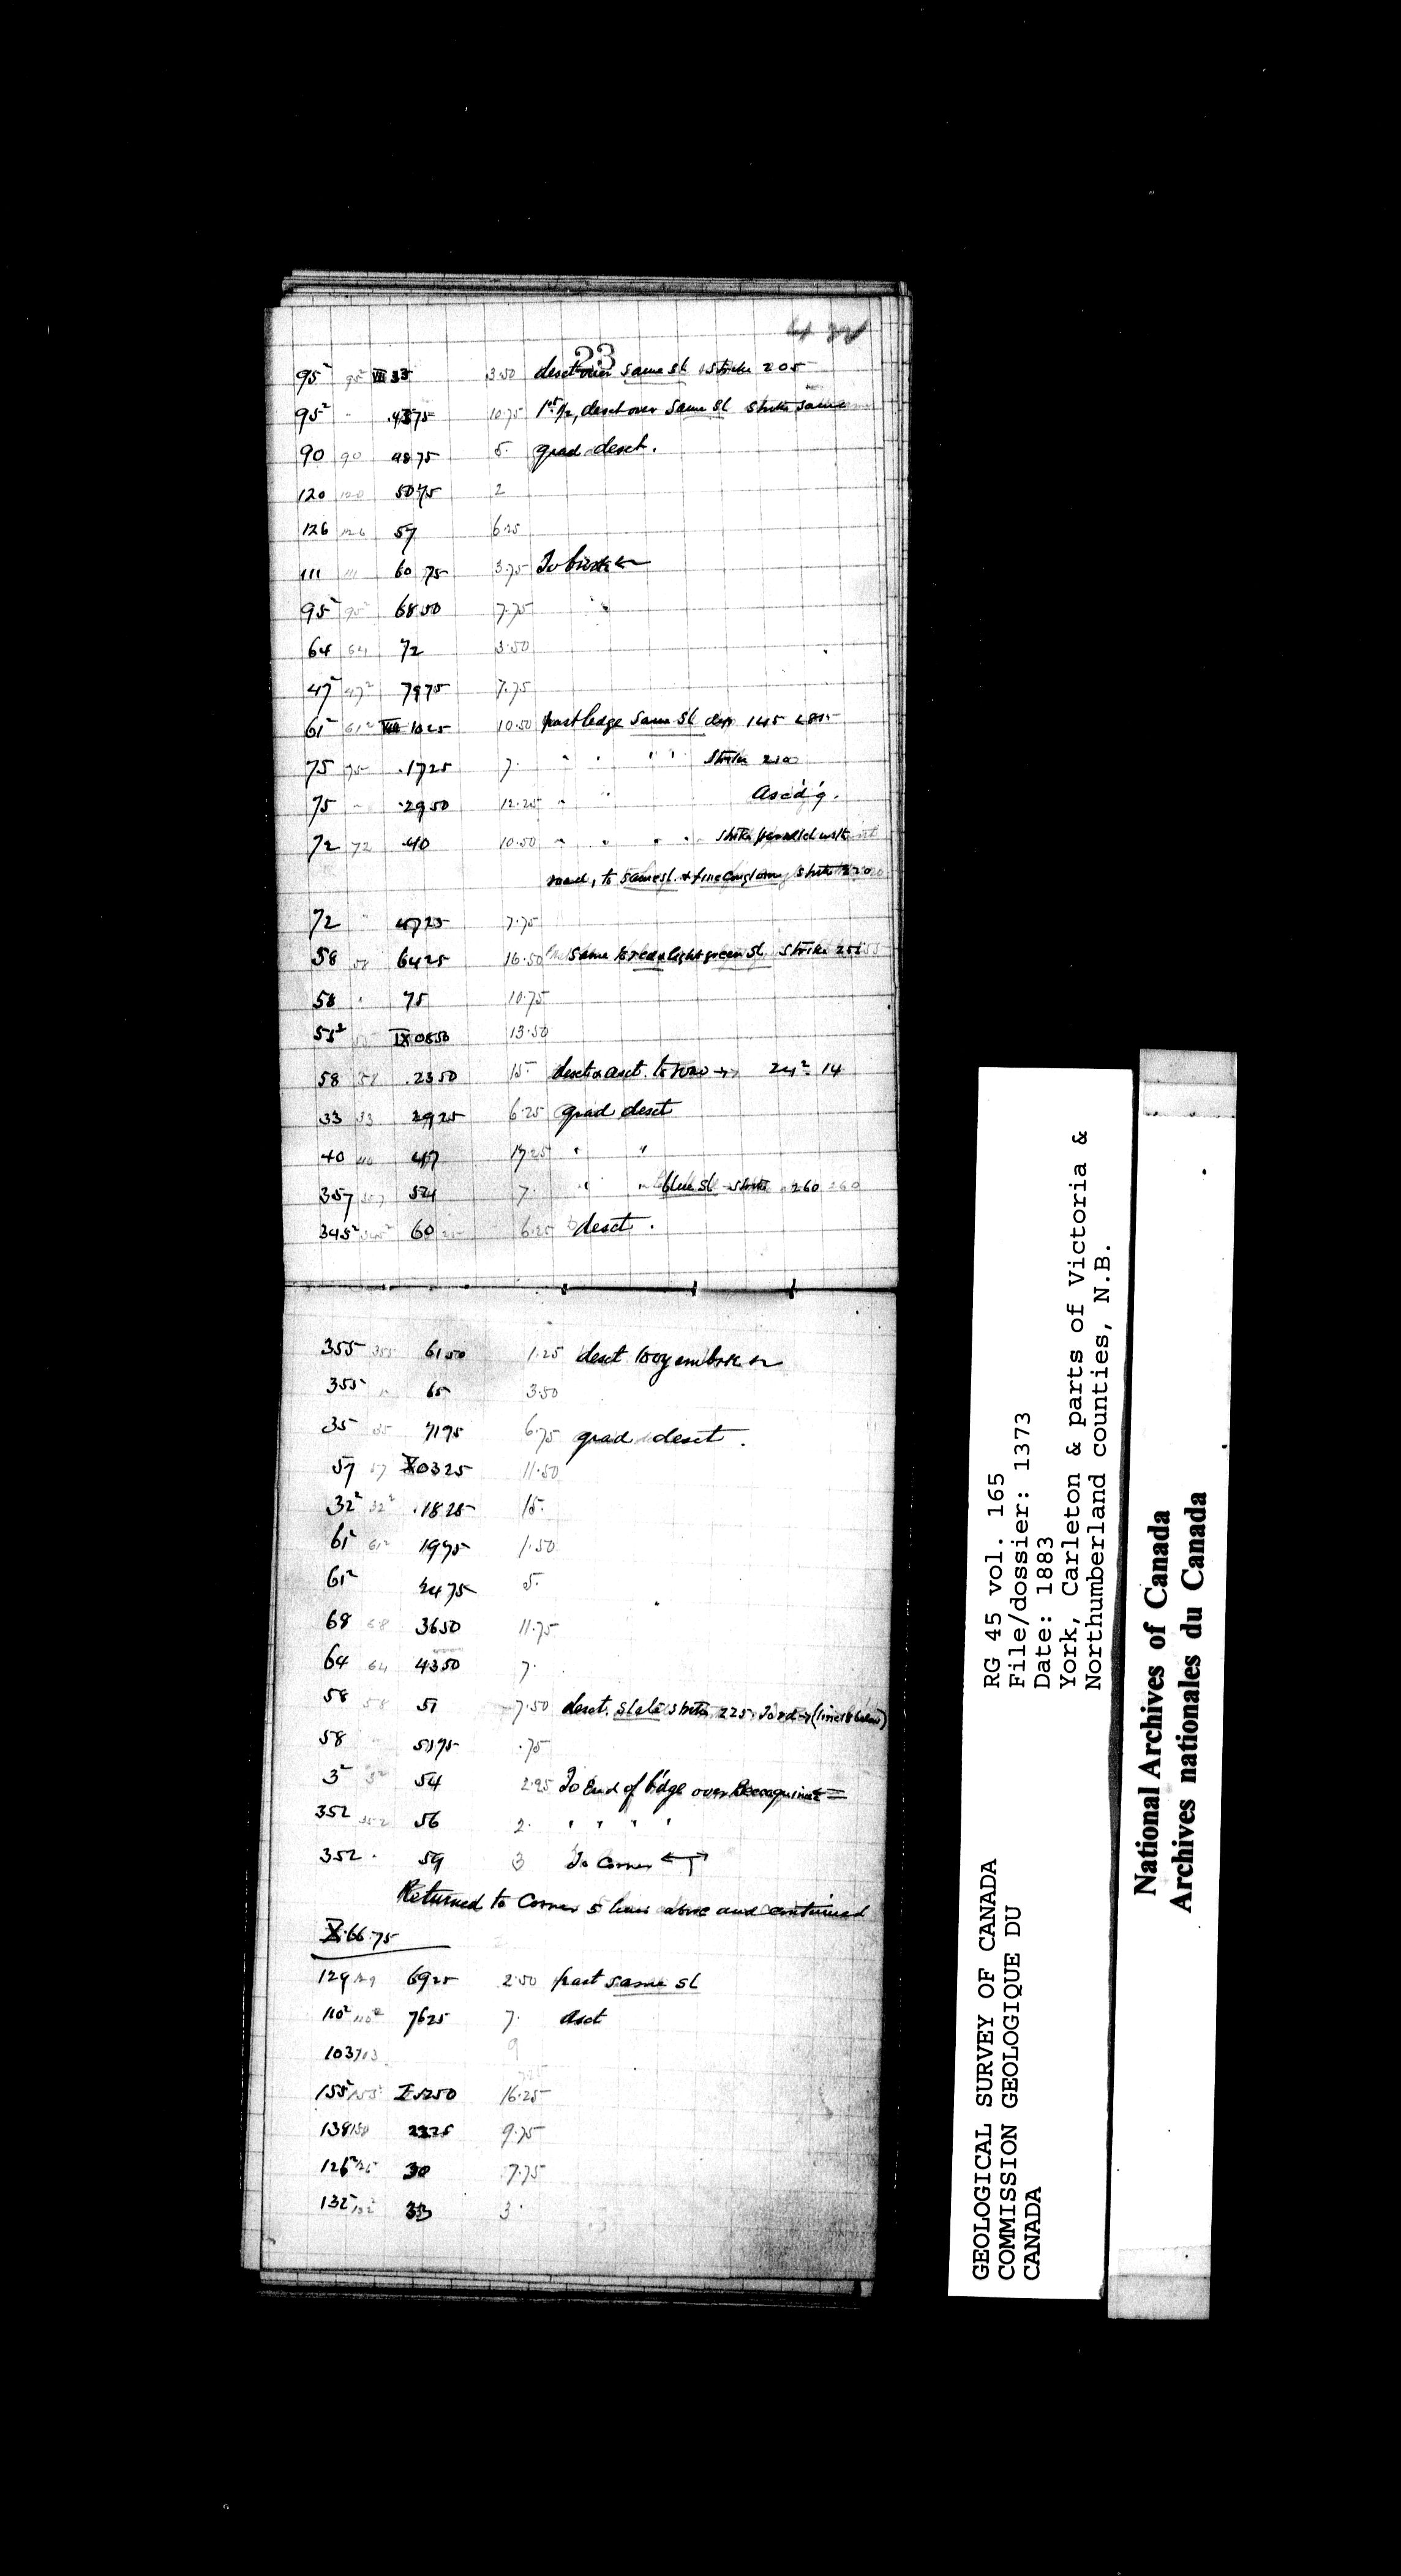 23
95² 95² VII 33 3.50 desct over same sl strike 205
95² " .4375 10.75 1st ½, desct over same sl strike same
90 90 4875 5. grad desct.
120 120 5075 2
126 126 57 6.25
111 111 60 75 3.75 To brook ←
95² 95² 6850 7.75 "
64 64 72 3.50
47² 47² 7975 7.75
61² 61² VIII 1025 10.50 past ledge same sl
75 75 .1725 7. " " " " strike 210
75 " .2950 12.25 " " Asc'd'g.
72 72 .40 10.50 " " " " strike parallel with
road, to same sl. & fine conglom strike 220
72 " 4725 7.75
58 58 6425 16.50 same to red & light green sl. strike
58 " 75 10.75
55² IX 0850 13.50
58 58 .2350 15. desct & asct. to road → 24² 14
33 33 2925 6.25 grad desct
40 40 47 17.25 " "
357 357 54 7. " " blue sl strike 260 260
345² 345² 60 6.25 desct.
355 355 6150 1.25 desct
355 " 65 3.50
35 35 7175 6.75 grad desct.
57 57 X 0325 11.50
32² 32² .1825 15.
61² 61² 1975 1.50
61² 2475 5.
68 68 3650 11.75
64 64 4350 7.
58 58 51 7.50 desct. slate strike 225. To rd → (line 18 below)
58 " 5175 .75
3² 3² 54 2.25 To End of b'dge over Becaguimec
352 352 56 2. " " " "
352 " 59 3 To Corner
Returned to Corner 5 lines above and continued
X.66.75
129 129 6925 2.50 past same sl
110² 110² 7625 7. asct
103 103 9
155 155 1250 16.25
138 138 2225 9.75
126² 126 30 7.75
132² 132² 33 3.
GEOLOGICAL SURVEY OF CANADA
COMMISSION GEOLOGIQUE DU
CANADA
RG 45 vol. 165
File/dossier: 1373
Date: 1883
York, Carleton & parts of Victoria &
Northumberland counties, N.B.
National Archives of Canada
Archives nationales du Canada